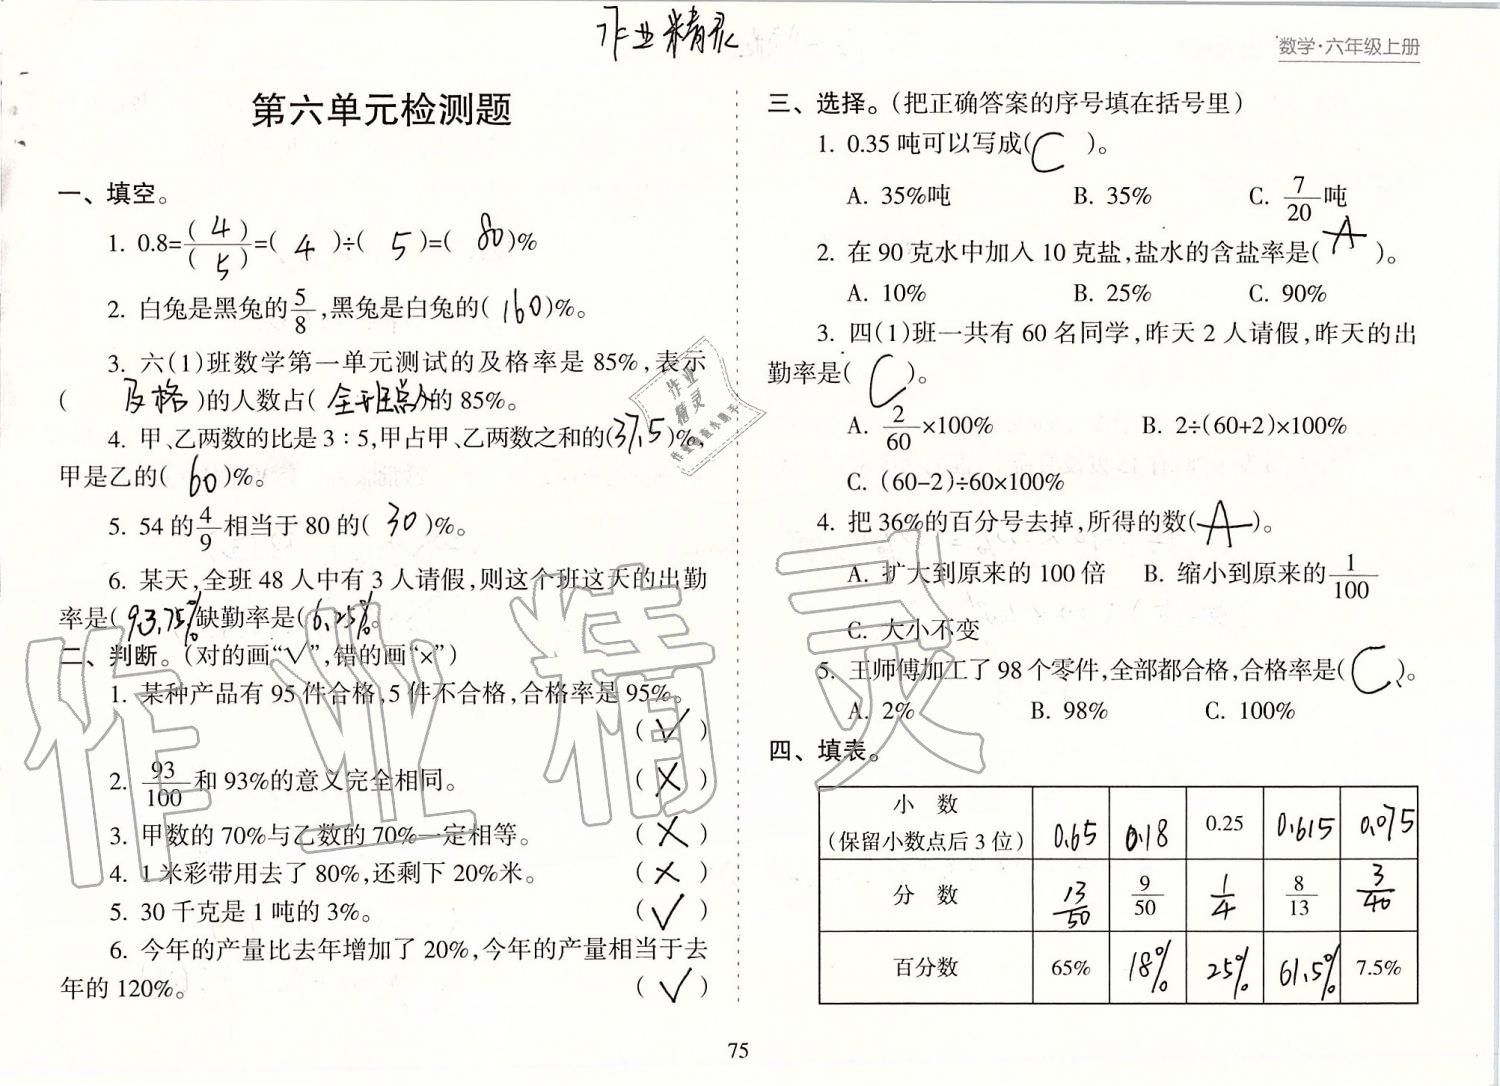 作业精灵
数学·六年级上册
第六单元检测题
一、填空。
1. 0.8=(4)/(5)=( 4 )÷( 5 )=( 80 )%
2. 白兔是黑兔的5/8,黑兔是白兔的( 160 )%。
3. 六(1)班数学第一单元测试的及格率是 85%,表示
( 及格 )的人数占( 全班总人的 85%。
4. 甲、乙两数的比是 3∶5,甲占甲、乙两数之和的(37.5)%,
甲是乙的( 60 )%。
5. 54 的4/9相当于 80 的( 30 )%。
6. 某天,全班 48 人中有 3 人请假,则这个班这天的出勤
率是( 93.75%缺勤率是( 6.25%。
二、判断。(对的画“√”,错的画“×”)
1. 某种产品有 95 件合格,5 件不合格,合格率是 95%。
( √ )
2. 93/100和 93%的意义完全相同。 ( × )
3. 甲数的 70%与乙数的 70%一定相等。 ( × )
4. 1 米彩带用去了 80%,还剩下 20%米。 ( × )
5. 30 千克是 1 吨的 3%。 ( √ )
6. 今年的产量比去年增加了 20%,今年的产量相当于去
年的 120%。 ( √ )
三、选择。(把正确答案的序号填在括号里)
1. 0.35 吨可以写成( C )。
A. 35%吨 B. 35% C. 7/20吨
2. 在 90 克水中加入 10 克盐,盐水的含盐率是( A )。
A. 10% B. 25% C. 90%
3. 四(1)班一共有 60 名同学,昨天 2 人请假,昨天的出
勤率是( C )。
A. 2/60×100% B. 2÷(60+2)×100%
C. (60-2)÷60×100%
4. 把 36%的百分号去掉,所得的数( A )。
A. 扩大到原来的 100 倍 B. 缩小到原来的1/100
C. 大小不变
5. 王师傅加工了 98 个零件,全部都合格,合格率是( C )。
A. 2% B. 98% C. 100%
四、填表。
小 数
(保留小数点后 3 位) 0.65 0.18 0.25 0.615 0.075
分 数 13/50 9/50 1/4 8/13 3/40
百分数 65% 18% 25% 61.5% 7.5%
75
作业精灵
作业精灵